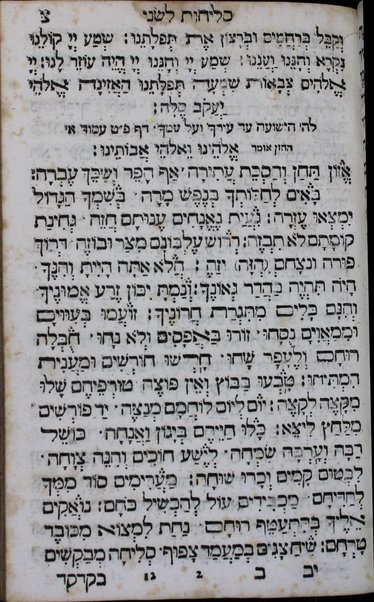 סליחות לשני
צ
וקבל ברחמים וברצון את תפלתנו: שמע יי קולנו
נקרא וחננו ועננו: שמע יי וחננו יי היה עוזר לנו: יי
אלהים צבאות שמעה תפלתנו האזינה אלהי
יעקב סלה:
לה׳ הישועה עד עירך ועל עמך׳ דף פ״ט עמוד א׳
החזן אומר אלהינו ואלהי אבותינו:
אזון תחן והסכת עתירה׳ אף הפר ושכך עברה:
באים לחלותך בנפש מרה׳ בשמך הגדול
ימצאו עזרה: געית נאנחים ענותם חזה׳ נהינת
קומתם לא תבזה: דרוש עלבונם מצר ובוזה׳ דרוך
פורה ונצחם יזה: הלא אתה היית והנך׳
היה תהיה בהדר גאונך: ונמת יכון זרע אמוניך
והנם כלים מתגרת חרוניך: זועמו בעוים
וממאוים נסחו׳ זורו באפסים ולא נחו׳ חבלה
רוחם ולעפר שחו׳ חרשו חורשים ומענית
המתיחו: טבעו בבוץ ואין פוצה׳ טורפיהם שלו
מקצה לקצה: יום ליום לוחמם מנצה׳ יד פורשים
מלחץ ליצא: כלו חייהם ביגון ואנחה׳ כושל
רבה וערבה שמחה׳ לישע חוכים והנה צוחה׳
לבטום קמים וכרו שוחה: מערימים סוד ממך
להדיחם׳ מכבידים עול להכשיל כחם: נואקים
אליך בהתעטף רוחם׳ נחת למצוא מכובד
טרחם: שיח צגים במעמד צפוף׳ סליחה מבקשים
יב ב 2 12 בקדקד